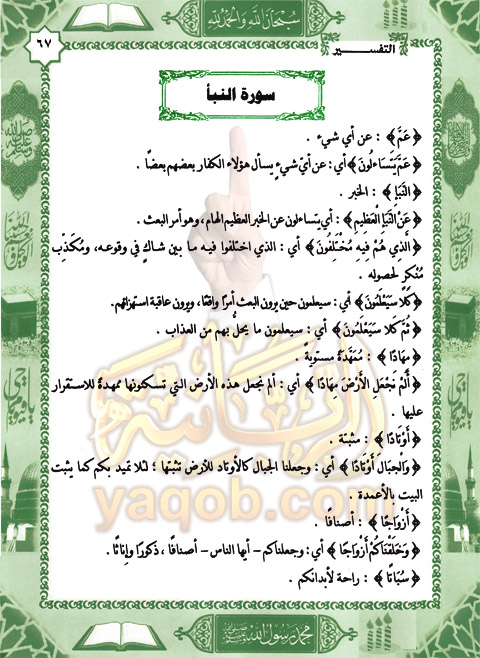 سبحان الله والحمد لله
٦٧
التفسير
سورة النبأ
﴿ عَمَّ ﴾ : عن أي شيء .
﴿ عَمَّ يَتَسَاءلُونَ ﴾ أي : عن أيّ شيءٍ يسأل هؤلاء الكفار بعضهم بعضًا .
﴿ النَّبَإِ ﴾ : الخبر .
﴿ عَنْ النَّبَإِ الْعَظِيمِ ﴾ : أي يتساءلون عن الخبر العظيم الهام ، وهو أمر البعث .
﴿ الَّذِي هُمْ فِيهِ مُخْتَلِفُونَ ﴾ أي : الذي اختلفوا فيه ما بين شاكٍ في وقوعه ، ومُكَذِّبٍ
مُنْكِرٍ لحصوله .
﴿ كَلَّا سَيَعْلَمُونَ ﴾ أي : سيعلمون حين يرون البعث أمرًا واقعًا ، ويرون عاقبة استهزائهم .
﴿ ثُمَّ كَلَّا سَيَعْلَمُونَ ﴾ أي : سيعلمون ما يحلُّ بهم من العذاب .
﴿ مِهَادًا ﴾ : مُمَهَّدَةً مستويةً .
﴿ أَلَمْ نَجْعَلِ الْأَرْضَ مِهَادًا ﴾ أي : ألم نجعل هذه الأرض التي تسكنونها ممهدةً للاستقرار
عليها .
﴿ أَوْتَادًا ﴾ : مثبتة .
﴿ وَالْجِبَالَ أَوْتَادًا ﴾ أي : وجعلنا الجبال كالأوتاد للأرض تثبتها ؛ لئلا تميد بكم كما يثبت
البيت بالأعمدة .
﴿ أَزْوَاجًا ﴾ : أصنافًا .
﴿ وَخَلَقْنَاكُمْ أَزْوَاجًا ﴾ أي : وجعلناكم – أيها الناس – أصنافًا ، ذكورًا وإناثًا .
﴿ سُبَاتًا ﴾ : راحة لأبدانكم .
yaqob.com
محمد رسول الله